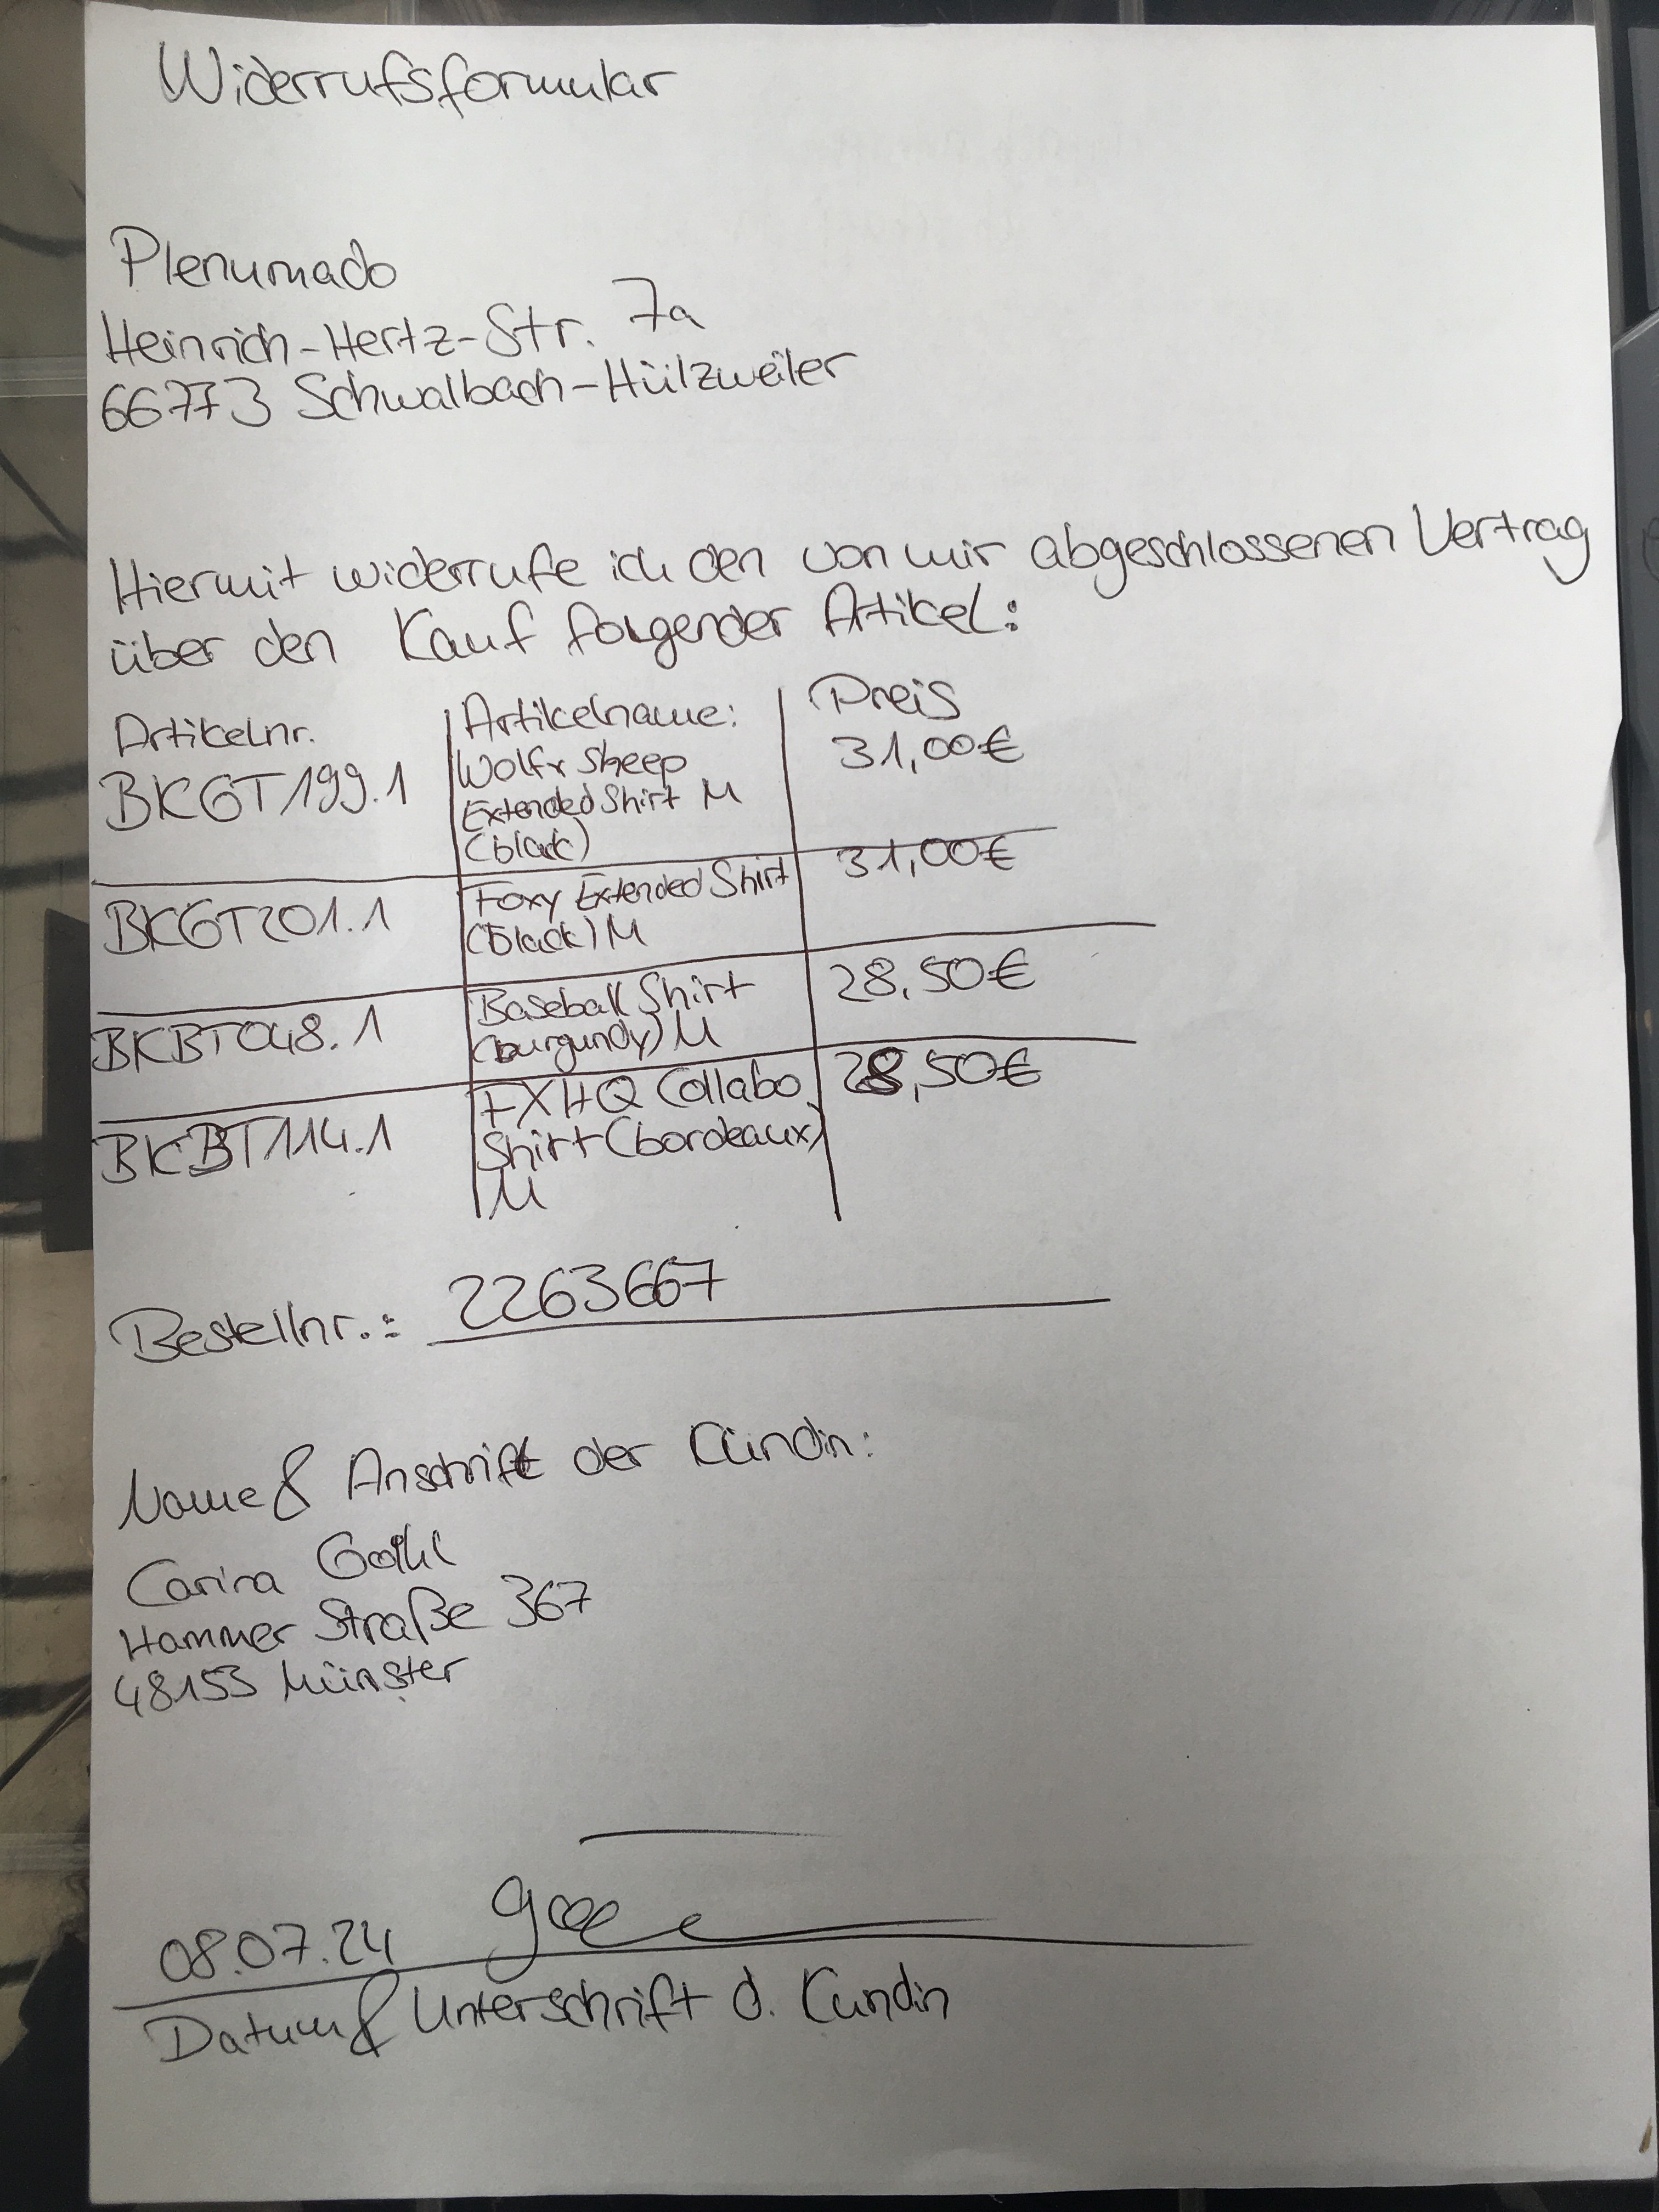 Widerrufsformular
Plenumado
Heinrich-Hertz-Str. 7a
66773 Schwalbach-Hülzweiler
Hiermit widerrufe ich den von mir abgeschlossenen Vertrag
über den Kauf folgender Artikel:
Artikelnr. Artikelname: Preis
BKGT199.1 Wolfx Sheep 31,00€
Extended Shirt M
(black)
BKGT201.1 Foxy Extended Shirt 31,00€
(black) M
BKBT048.1 Baseball Shirt 28,50€
(burgundy) M
BKBT114.1 FXHQ Collabo 28,50€
Shirt (bordeaux)
M
Bestellnr.: 2263667
Name & Anschrift der Kundin:
Carina
Hammer Straße 367
48153 Münster
08.07.24
Datum & Unterschrift d. Kundin